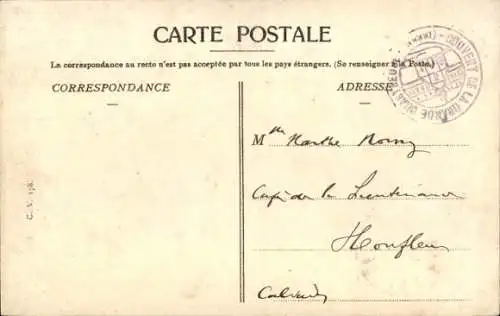 CARTE POSTALE
La correspondance au recto n'est pas acceptée par tous les pays étrangers. (Se renseigner à la Poste.)
CORRESPONDANCE
ADRESSE
COUVENT DE LA GRANDE CHARTREUSE
Mlle Marthe Romy
Café de la Lieutenance
Honfleur
Calvados
C. V. 138.